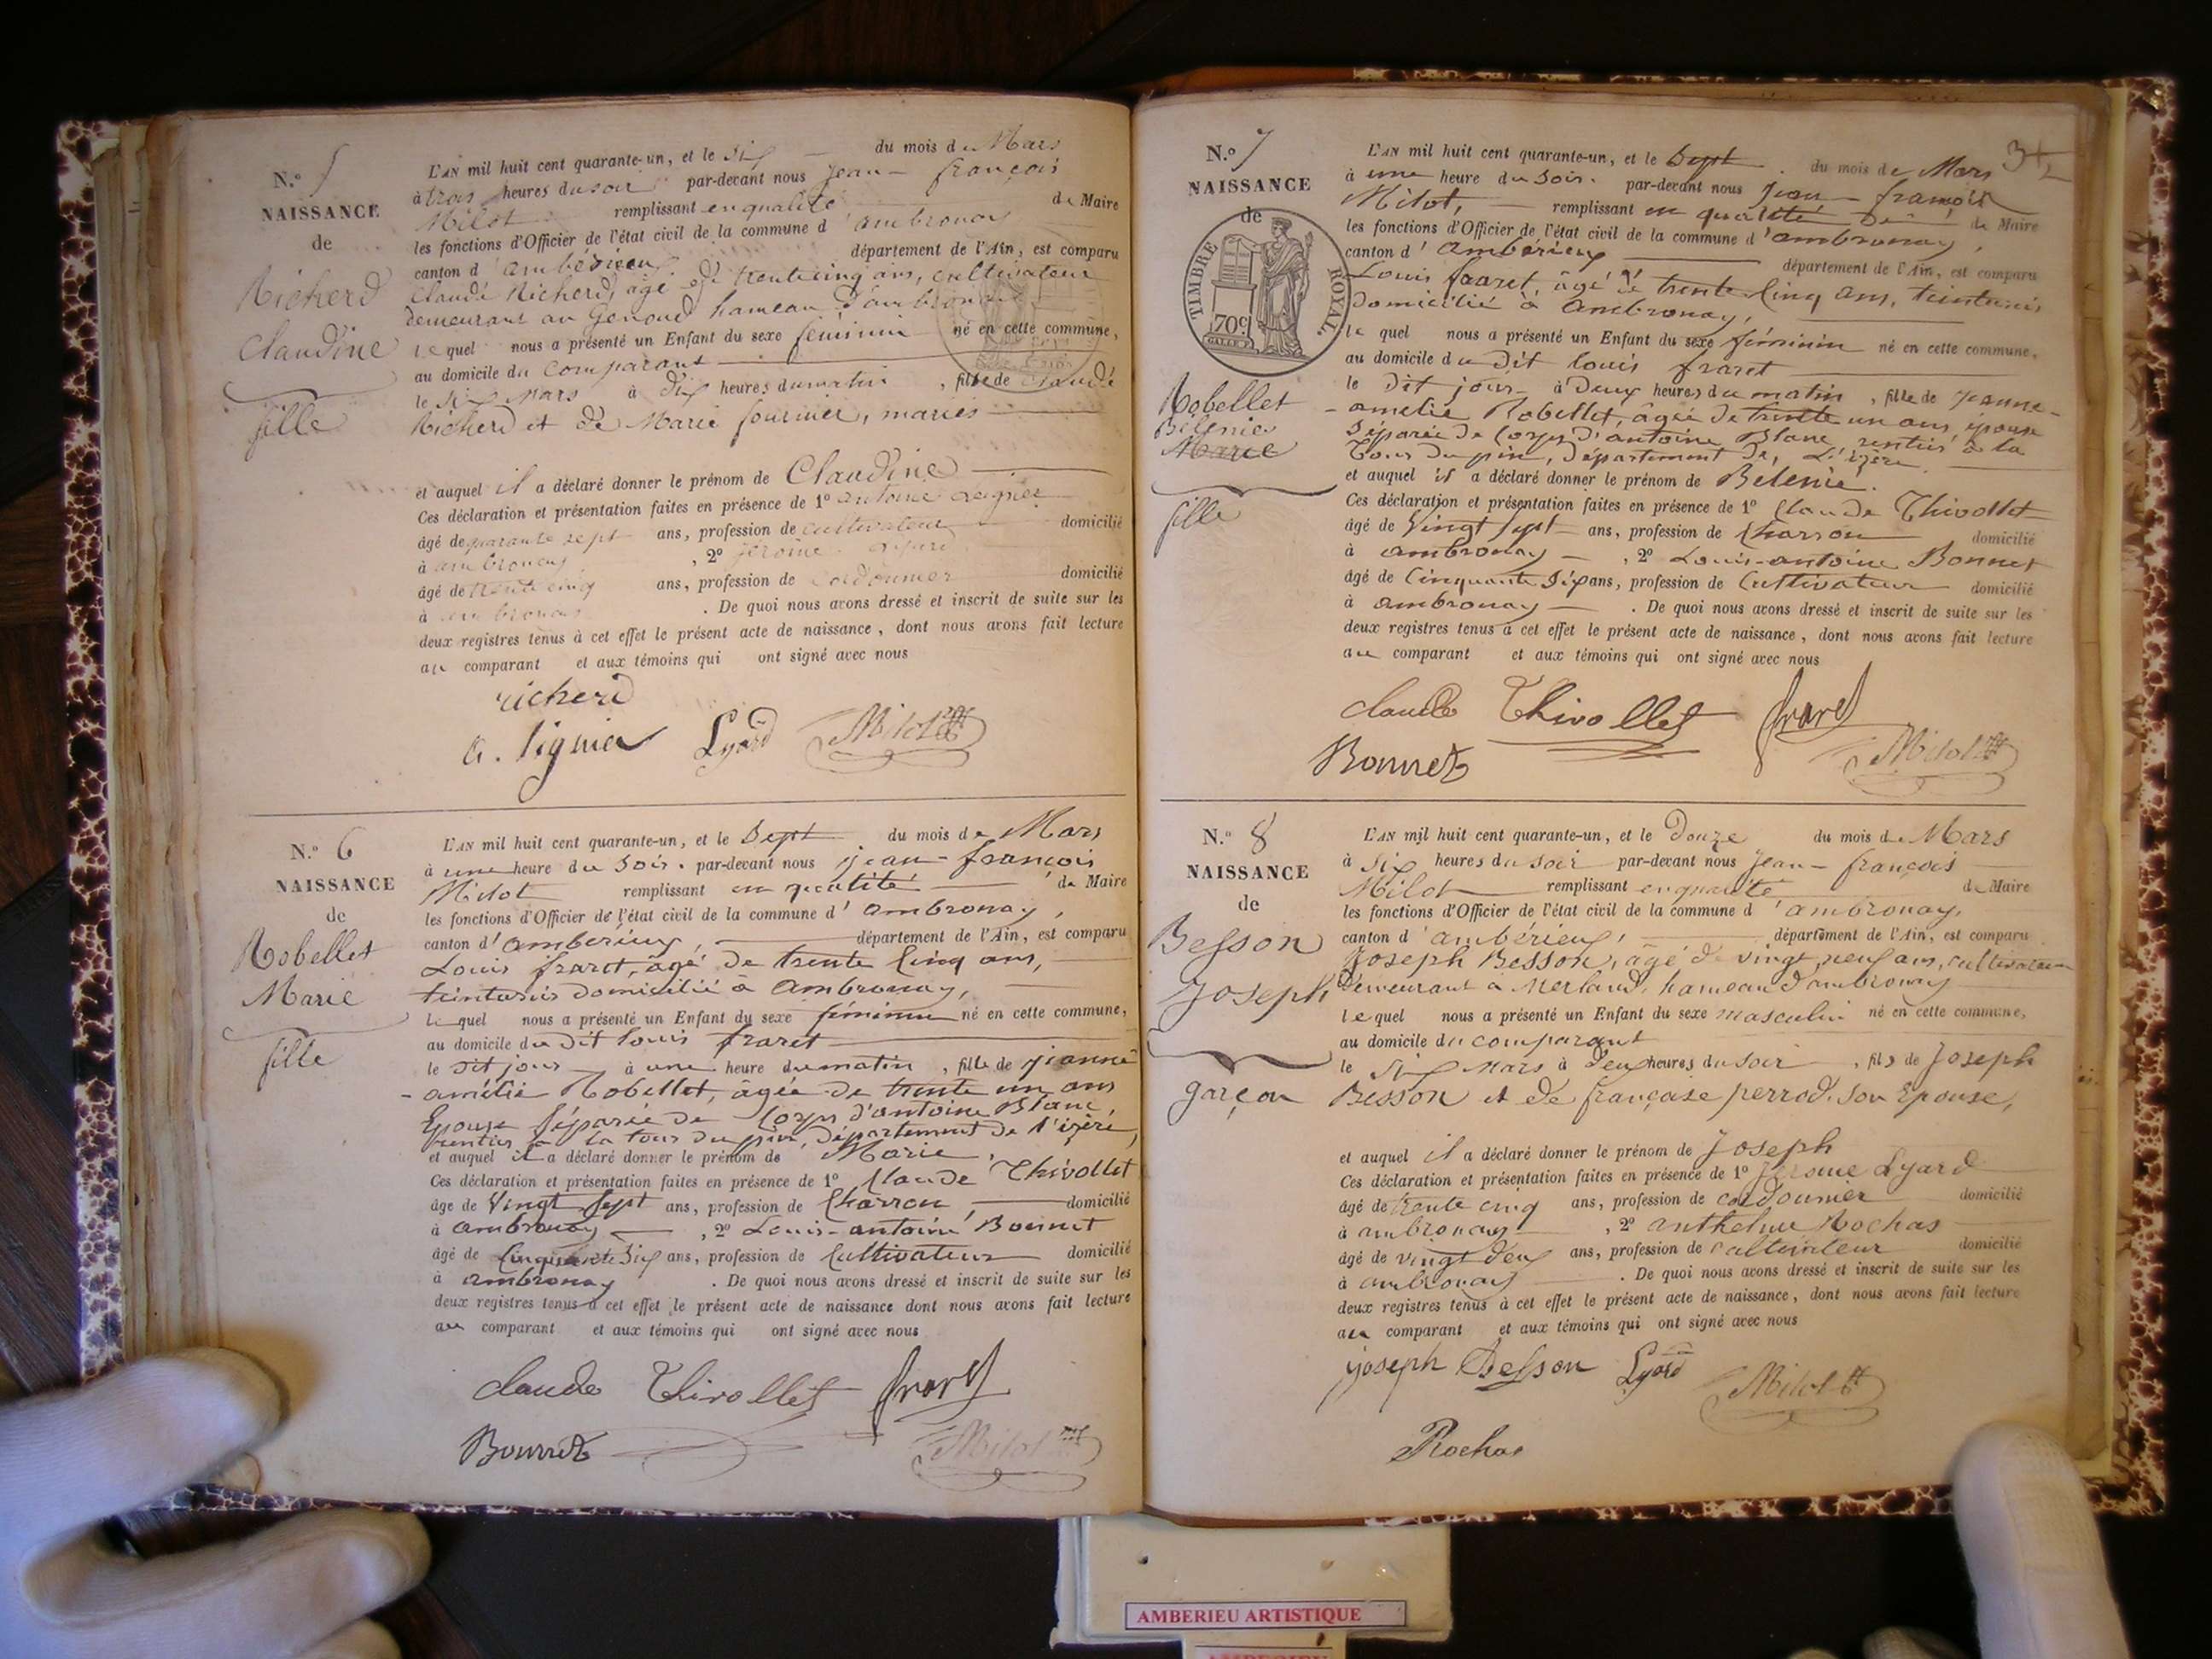 N.o 5
NAISSANCE
de
Richerd
Claudine
fille
L'AN mil huit cent quarante-un, et le six du mois de Mars
à trois heures du soir par-devant nous jean-françois
Milot remplissant en qualité de Maire
les fonctions d'Officier de l'état civil de la commune d'ambronay
canton d'ambérieux département de l'Ain, est comparu
Claude Richerd, agé de trente cinq ans, cultivateur
demeurant au Genoud hameau d'ambronay
lequel nous a présenté un Enfant du sexe feminin né en cette commune,
au domicile du comparant
le six mars à dix heures du matin, fille de Claude
Richerd et de Marie fournier, mariés
et auquel il a déclaré donner le prénom de Claudine
Ces déclaration et présentation faites en présence de 1o antoine
âgé de quarante sept ans, profession de cultivateur domicilié
à ambronay, 2o jérome
âgé de trente cinq ans, profession de cordonnier domicilié
à ambronay. De quoi nous avons dressé et inscrit de suite sur les
deux registres tenus à cet effet le présent acte de naissance, dont nous avons fait lecture
au comparant et aux témoins qui ont signé avec nous
richerd
a. lignier Lyard Milot
N.o 6
NAISSANCE
de
Robellet
Marie
fille
L'AN mil huit cent quarante-un, et le Sept du mois de Mars
à une heure du Soir. par-devant nous jean-françois
Milot remplissant en qualité de Maire
les fonctions d'Officier de l'état civil de la commune d'ambronay,
canton d'amberieux, département de l'Ain, est comparu
Louis fraret, âgé de trente Cinq ans,
teinturier domicilié à Ambronay,
lequel nous a présenté un Enfant du sexe féminin né en cette commune,
au domicile du dit louis fraret
le dit jour à une heure du matin, fille de jeanne
-amélie Robellet, âgée de trente un ans
Epouse séparée de Corps d'antoine Blanc,
rentier à la tour du pin, département de l'izère,
et auquel il a déclaré donner le prénom de Marie.
Ces déclaration et présentation faites en présence de 1o Claude Thivollet
âge de Vingt Sept ans, profession de Charron, domicilié
à ambronay, 2o Louis-antoine Bonnet
âgé de Cinquante Six ans, profession de Cultivateur domicilié
à ambronay. De quoi nous avons dressé et inscrit de suite sur les
deux registres tenus à cet effet le présent acte de naissance dont nous avons fait lecture
au comparant et aux témoins qui ont signé avec nous
claude Thivollet fraret
Bonnet Milot
34
N.o 7
NAISSANCE
de
TIMBRE ROYAL.
70c
Robellet
Belenie
Marie
fille
L'AN mil huit cent quarante-un, et le Sept du mois de Mars
à une heure du Soir. par-devant nous Jean-françois
Milot, remplissant en qualité De de Maire
les fonctions d'Officier de l'état civil de la commune d'ambronay,
canton d'Ambérieux département de l'Ain, est comparu
Louis fraret, âgé de trente Cinq ans, teinturier
Domicilié à Ambronay,
lequel nous a présenté un Enfant du sexe féminin né en cette commune,
au domicile du dit louis fraret
le dit jour à Deux heures du matin, fille de jeanne-
-amelie Robellet, âgée de trente un ans, épouse
Séparée de Corps d'antoine Blanc, rentier à la
Tour du pin, département de, L'izère.
et auquel il a déclaré donner le prénom de Belenie.
Ces déclaration et présentation faites en présence de 1o Claude Thivollet
âgé de Vingt sept ans, profession de Charron domicilié
à ambronay, 2o Louis-antoine Bonnet
âgé de Cinquante Six ans, profession de Cultivateur domicilié
à ambronay. De quoi nous avons dressé et inscrit de suite sur les
deux registres tenus à cet effet le présent acte de naissance, dont nous avons fait lecture
au comparant et aux témoins qui ont signé avec nous
claude Thivollet fraret
Bonnet Milot
N.o 8
NAISSANCE
de
Besson
Joseph
garçon
L'AN mil huit cent quarante-un, et le Douze du mois de Mars
à Six heures du soir par-devant nous jean-françois
Milot remplissant en qualité de Maire
les fonctions d'Officier de l'état civil de la commune d'ambronay,
canton d'ambérieux, département de l'Ain, est comparu
Joseph Besson, âgé de vingt neuf ans, cultivateur
demeurant à Merland, hameau d'ambronay
lequel nous a présenté un Enfant du sexe masculin né en cette commune,
au domicile du comparant
le Six Mars à deux heures du soir, fils de Joseph
Besson et de françoise perrod. Son Epouse,
et auquel il a déclaré donner le prénom de Joseph
Ces déclaration et présentation faites en présence de 1o Jérome Lyard
âgé de trente cinq ans, profession de cordonnier domicilié
à ambronay, 2o anthelme Rochas
âgé de vingt deux ans, profession de cultivateur domicilié
à ambronay. De quoi nous avons dressé et inscrit de suite sur les
deux registres tenus à cet effet le présent acte de naissance, dont nous avons fait lecture
au comparant et aux témoins qui ont signé avec nous
joseph Besson Lyard Milot
Rochas
AMBERIEU ARTISTIQUE